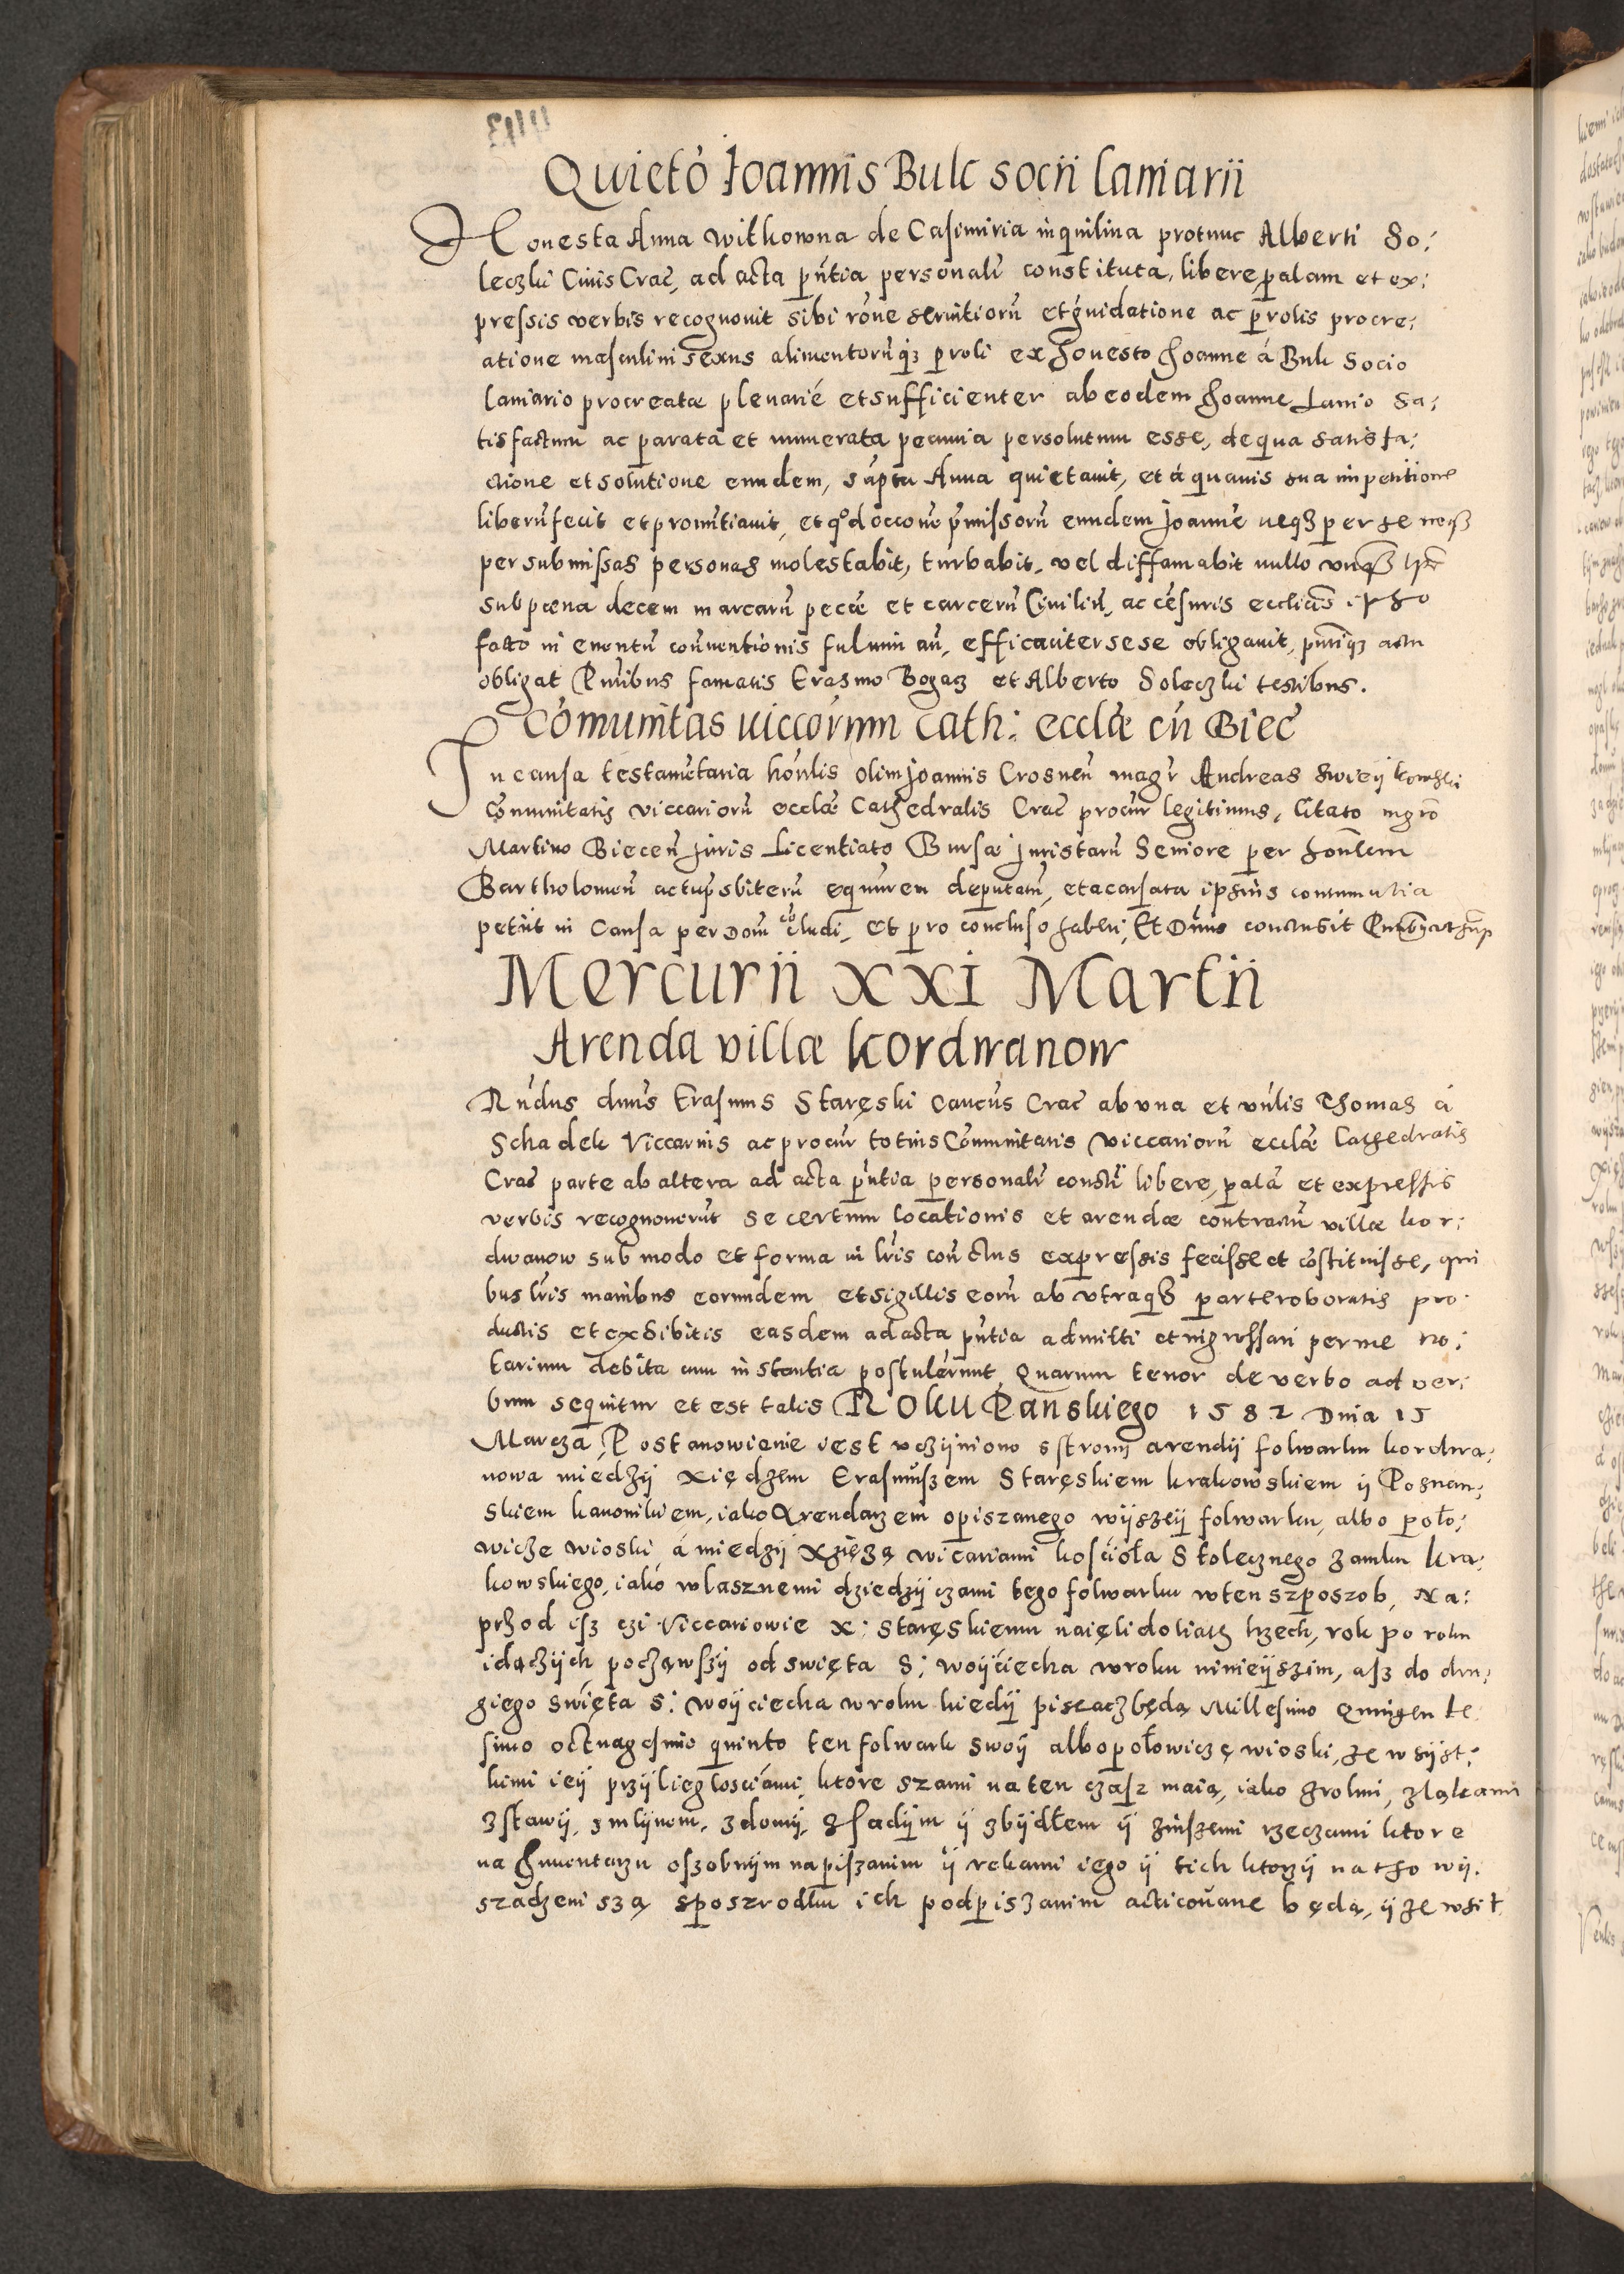 Quietō Joannis Bulc socii laniarii
Honesta Anna Witkowna de Casimiria inquilina protunc Alberti So:
leczki Ciuis Crac̄, ad acta pñtia personalr̄ constituta, libere, palam et ex:
pressis verbis recognouit sibi rōne seruitiorū et grauidatione ac prolis procre:
atione masculini sexus alimentorūq3 proli ex honesto Joanne á Bulc Socio
laniario procreatæ plenarié et sufficienter ab eodem Joanne Lanio sa:
tisfactum ac parata et numerata pecunia persolutum esse, de qua satisfa:
ctione et solutione eundem, sāpta Anna quietauit, et á quauis sua impetitione
liberū fecit et pronūtiauit, et q̊d occōne p̄missorū eundem Joannē neq3 per se neq3
per submissas personas molestabit, turbabit, vel diffamabit nullo vnq3
sub pœna decem marcarū pecæ et carcerū Ciuiliū, ac cēsuris ecclīcis ipso
facto in euentū conuentionis fulminañ, efficaciter sese obligauit, pūtiq3 actu
obligat Pñtibus famatis Erasmo Bogacz et Alberto Soleczki testibus.
Cōmunitas viccōrum Cath: ecclæ cū Biec̄
In causa testamētaria hoñlis olim Joannis Crosneñ magr̄ Andreas Swieykowski
Cōmunitatis viccariorū ecclæ Cathedralis Crac̄ procur̄ legitimus, Citato mgrō
Martino Bieceñ Juris Licentiato Bursæ Juristarū Seniore per hoñlem
Bartholomeū actu p̄sbiterū deputatū, et accusata ipsius contumatia
petiit in Causa per Dom̄ cōcludi, et pro concluso haberi, Et Dñus conclusit
Mercurii XXI Martii
Arenda villæ Kordwanow
Rñdus dñus Erasmus Staręski Cancus Crac̄ ab vna et vñlis Thomas á
Schadek Viccarius ac procur̄ totius Cōmunitatis viccariorū ecclæ Cathedralis
Crac̄ parte ab altera ad acta pñtia personalr̄ constī libere, palā et expressis
verbis recognouerūt se certum locationis et arendæ contractū villæ kor:
dwanow sub modo et forma in lr̄is conctus expressis fecisse et cōstituisse, qui
bus lr̄is manibus eorundem et sigillis eorū ab vtraq3 parte roboratis pro
ductis et exhibitis easdem ad acta pñtia admitti et ingrossari per me no:
tarium debita cum instantia postulārunt, Quarum tenor de verbo ad ver:
bum sequitur et est talis Roku Pańskiego 1582 Dnia 15
Marcza, Postanowienie iest vczÿniono sstronÿ arendÿ folwarku kordwa:
nowa miedzÿ Xiędzem Erasmuszem Staręskiem krakowskiem ÿ Poznan:
skiem kanonikiem, iako Arendarzem opiszanego wÿszeÿ folwarku, albo poło:
wicze wioski, á miedzÿ Xzięzą wicariami kościoła Stolecznego zamku kra:
kowskiego, iako wlasznemi dziedzÿczami tego folwarku wten szposzob, Na:
przod isz czi Viccariowie X: Staręskiemu naięli do liath trzech, rok po roku
idączÿch począwszÿ od swięta S: woÿciecha wroku ninieÿszim, asz do dru:
giego swięta S: woÿciecha wroku kiedÿ piszacz będą Millesimo Quingente
simo octuagesimo quinto ten folwark swoÿ albo połowiczę wioski, ze wsÿst:
kimi ieÿ przÿliegłosciámi, ktore szami na ten czasz maią, iako zrolmi, złąkami
zstawÿ, zmlÿnom, zdomÿ, zsadÿm ÿ zbÿdłem ÿ zinszemi rzeczami ktore
na Inuentarzu oszobnÿm napiszanim ÿ rekami iego ÿ tich ktorzÿ na tho wÿ:
szadzeni szą sposzrodku ich podpiszanim acticouane będą, ÿ ze wsit